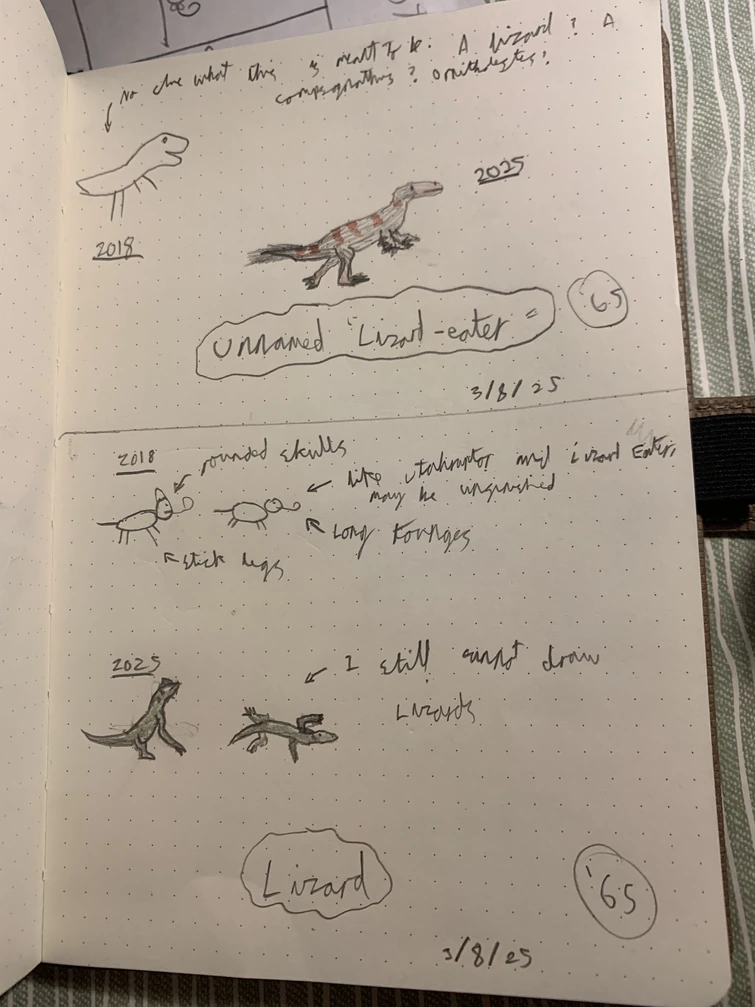 No clue what this is meant to be. A lizard? A
compsognathus? Ornitholestes?
2018
2025
Unnamed "Lizard-eater"
'65
3/8/25
2018
rounded skulls
like utahraptor and Lizard Eater,
may be
Long Tounges
stick legs
2025
I still cannot draw
Lizards
Lizard
'65
3/8/25